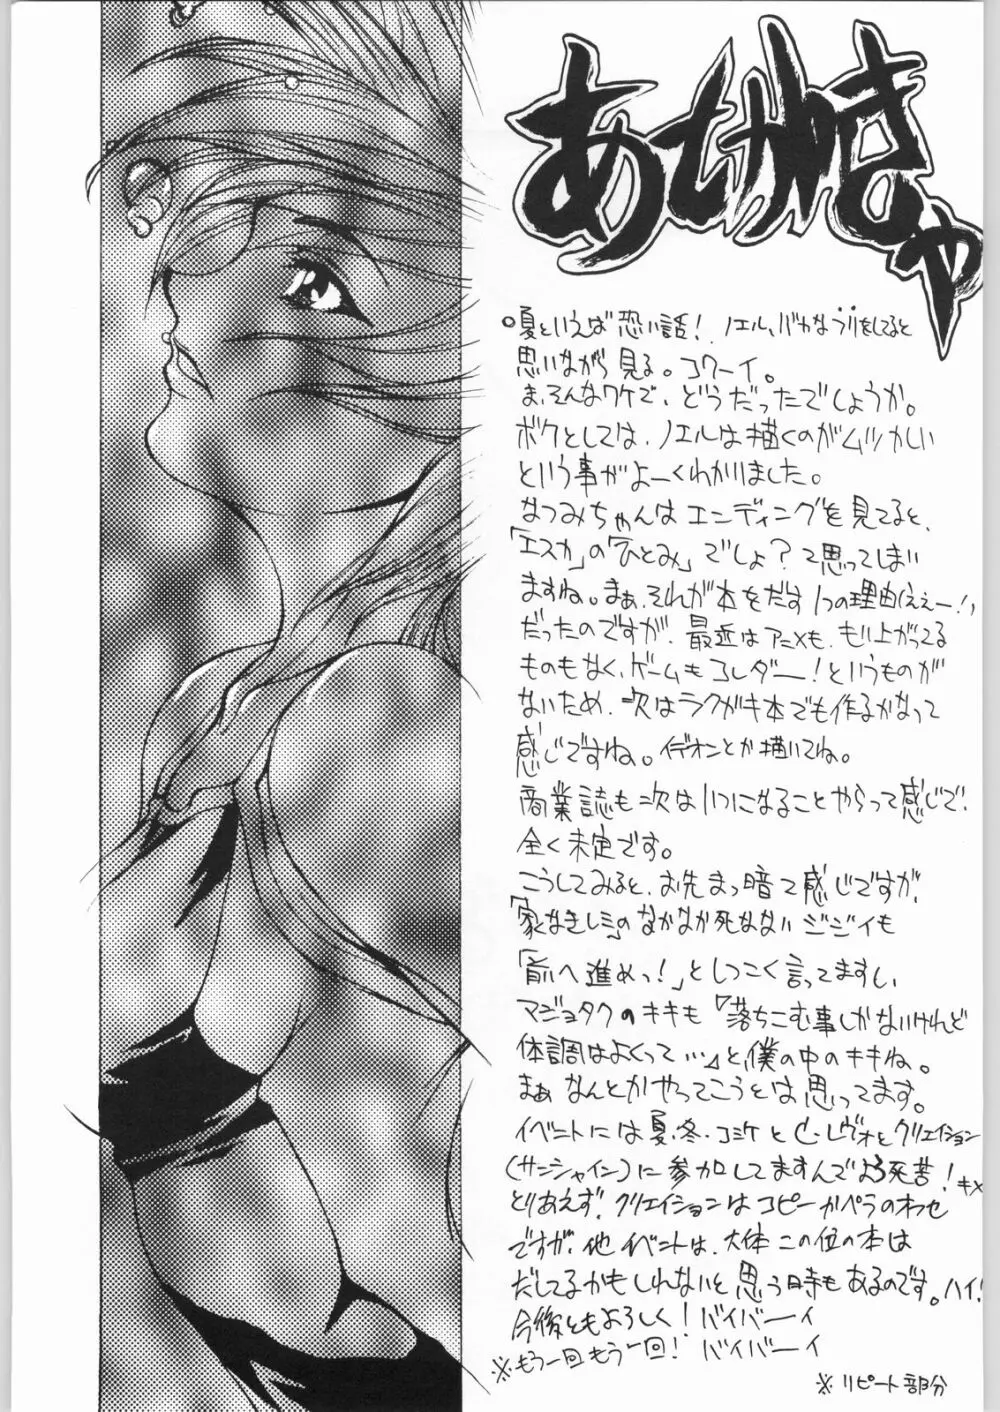 あとがきャ
。夏といえば恐い話! ノエル、バカなフリをしてると
思いながら見る。コワーイ。
ま、そんなワケで、どうだったでしょうか。
ボクとしては、ノエルは描くのがムツかしい
という事がよーくわかりました。
なつみちゃんはエンディングを見てると、
「エスカ」の「ひとみ」でしょ?て思ってしまい
ますね。まぁ、それが本をだす1つの理由(ええー!)
だったのですが、最近はアニメも、もり上がってる
ものもなく、ゲームもコレダー!というものが
ないため、次はラクガキ本でも作るかなって
感じですね。イデオンとか描いてね。
商業誌も次はいつになることやらって感じで、
全く未定です。
こうしてみると、お先まっ暗て感じですが、
「家なき子」のなかなか死なない ジジイも
「前へ進めっ!」としつこく言ってますし
マジョタクのキキも「落ちこむ事しかないけれど
体調はよくって…」と、僕の中のキキね。
まぁ なんとかやってこうとは思ってます。
イベントには夏・冬・コミケと C・レヴォとクリエイション
(サンシャイン)に参加してますんでよろ死苦!キメ
とりあえず、クリエイションはコピーかペラのわせ
ですが、他イベントは、大体この位の本は
だしてるかもしれないと思う時もあるのです。ハイ!
今後ともよろしく! バイバーイ
※もう一回もう一回! バイバーイ
※リピート部分